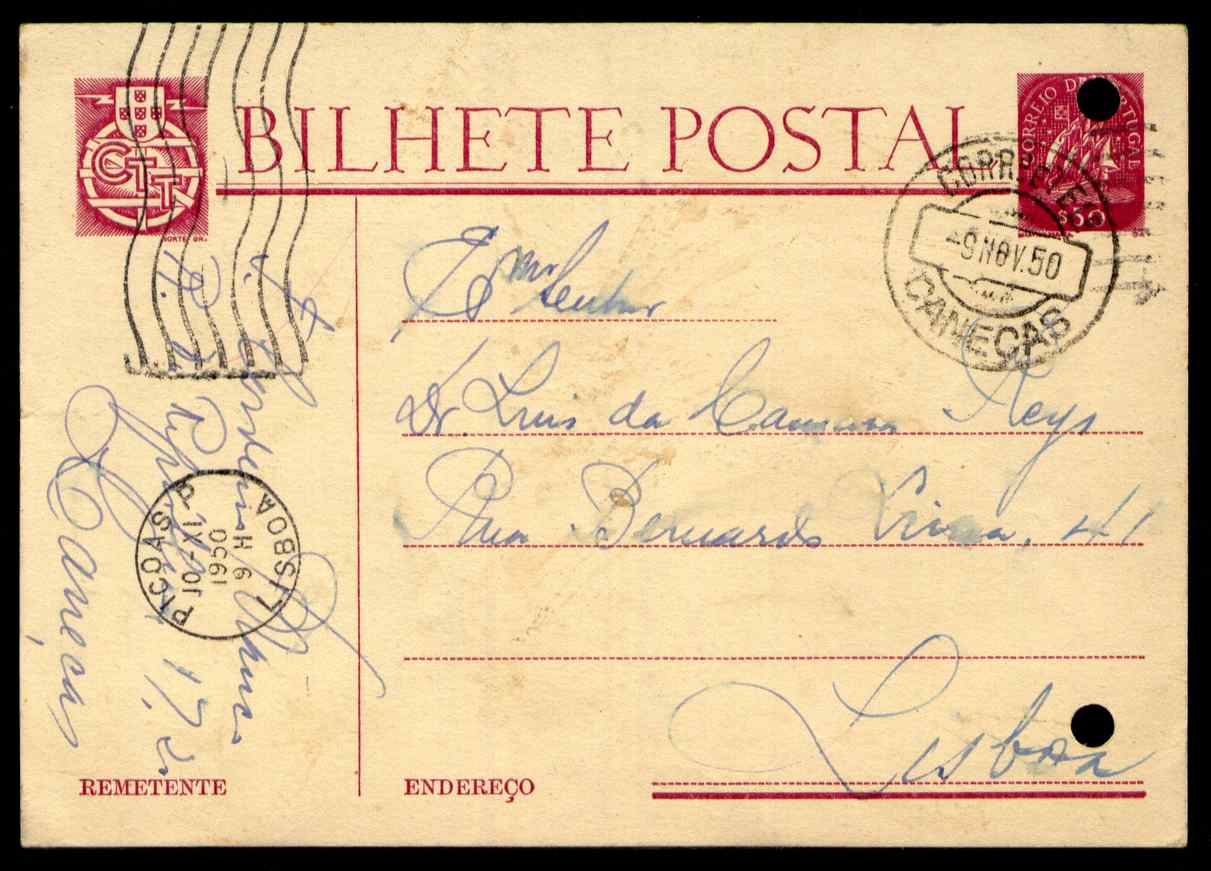 BILHETE POSTAL
CTT
CORREIO DE PORTUGAL
$50
CORREIOS
-9 NOV. 50
CANEÇAS
Exmº Senhor
Dr. Luis da Camara Reys
Rua Bernardo Lima, 41
Lisboa
R.
Caneças
LISBOA
6 H
1950
10-XI
PICOAS
REMETENTE
ENDEREÇO